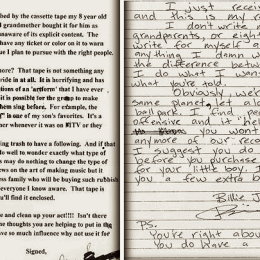 bed by the cassette tape my 8 year old
grandmother bought it for him as
naware of its explicit content. The
have any ticket or color on it to warn
ue I plan to pursue with the right people.
nore? That tape is not something any
ride in at all. It is horrifying and has
tions of an 'artform' that I have ever
it is possible for the group to make
hem sing before. For example, the
" is one of my son's favorites. It's a
her whenever it was on MTV or they
ing trash to have a following. And if that
d well to wonder exactly what type of
s may do nothing to change the type of
ws on the art of making music but it
ess family will be buying such rubbish
everyone I know aware. That tape is
u'll find it enclosed.
e and clean up your act!!! Isn't there
e thoughts you are helping to put in the
ve so much influence why not use it for
Signed,
I just recei
and this is my r
I don't write m
grandparents or eigh
write for myself a
anything I damn w
the difference betw
I do what I want
what you're told.
Obviously we'r
same planet, let alo
ballpark. I find pe
offensive and it he
you won't
anymore of our reco
I suggest you do
before you purchase
for your little boy.
you a few extra b
Billie J
PS.
You're right abou
You do have a